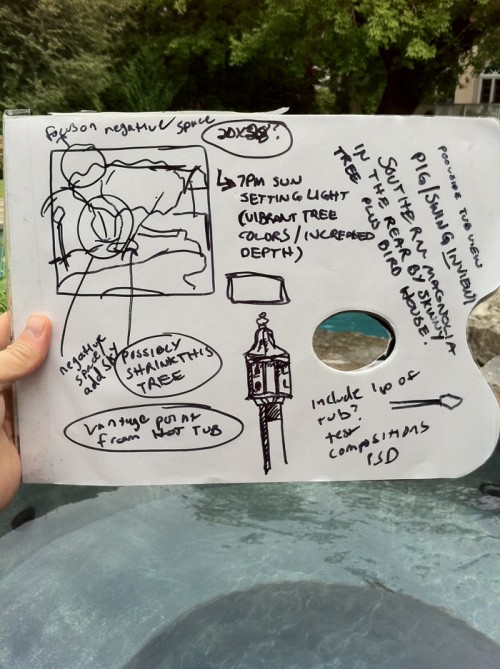 focus on negative space
20x28?
7PM SUN
SETTING LIGHT
(VIBRANT TREE
COLORS/INCREASED
DEPTH)
POOLSIDE TUB VIEW
PIG/SWING IN VIEW/
SOUTHERN MAGNOLIA
IN THE REAR BY SKINNY
TREE PLUS BIRD HOUSE.
negative
space/
add sky
POSSIBLY
SHRINK THIS
TREE
Vantage point
from HOT TUB
Include lip of
tub?
test
compositions
PSD